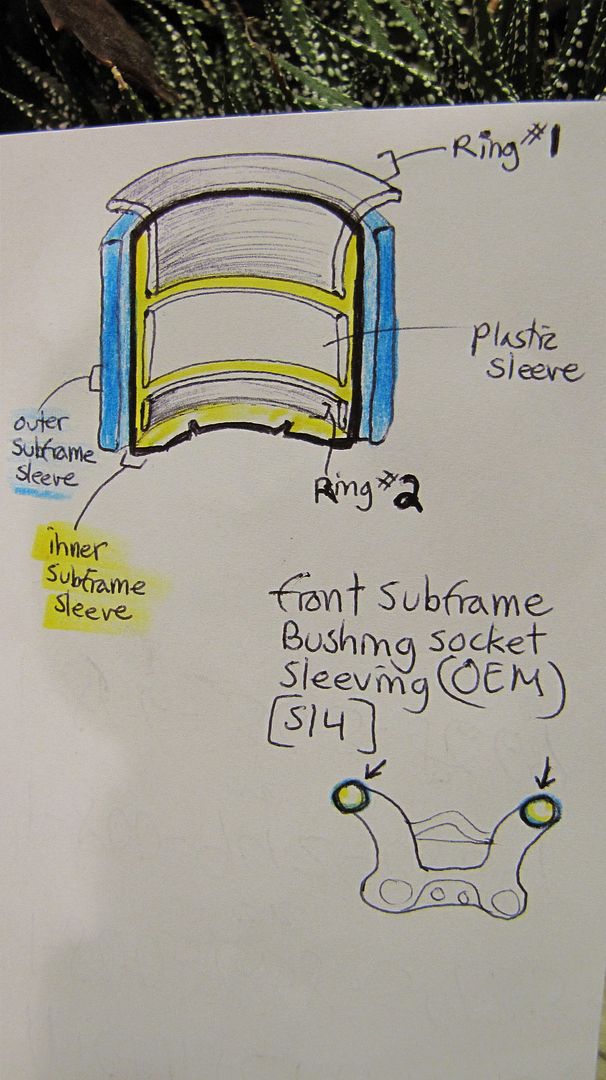 Ring #1
Plastic
Sleeve
outer
Subframe
Sleeve
Ring #2
inner
Subframe
sleeve
front Subframe
Bushing socket
Sleeving (OEM)
[S14]